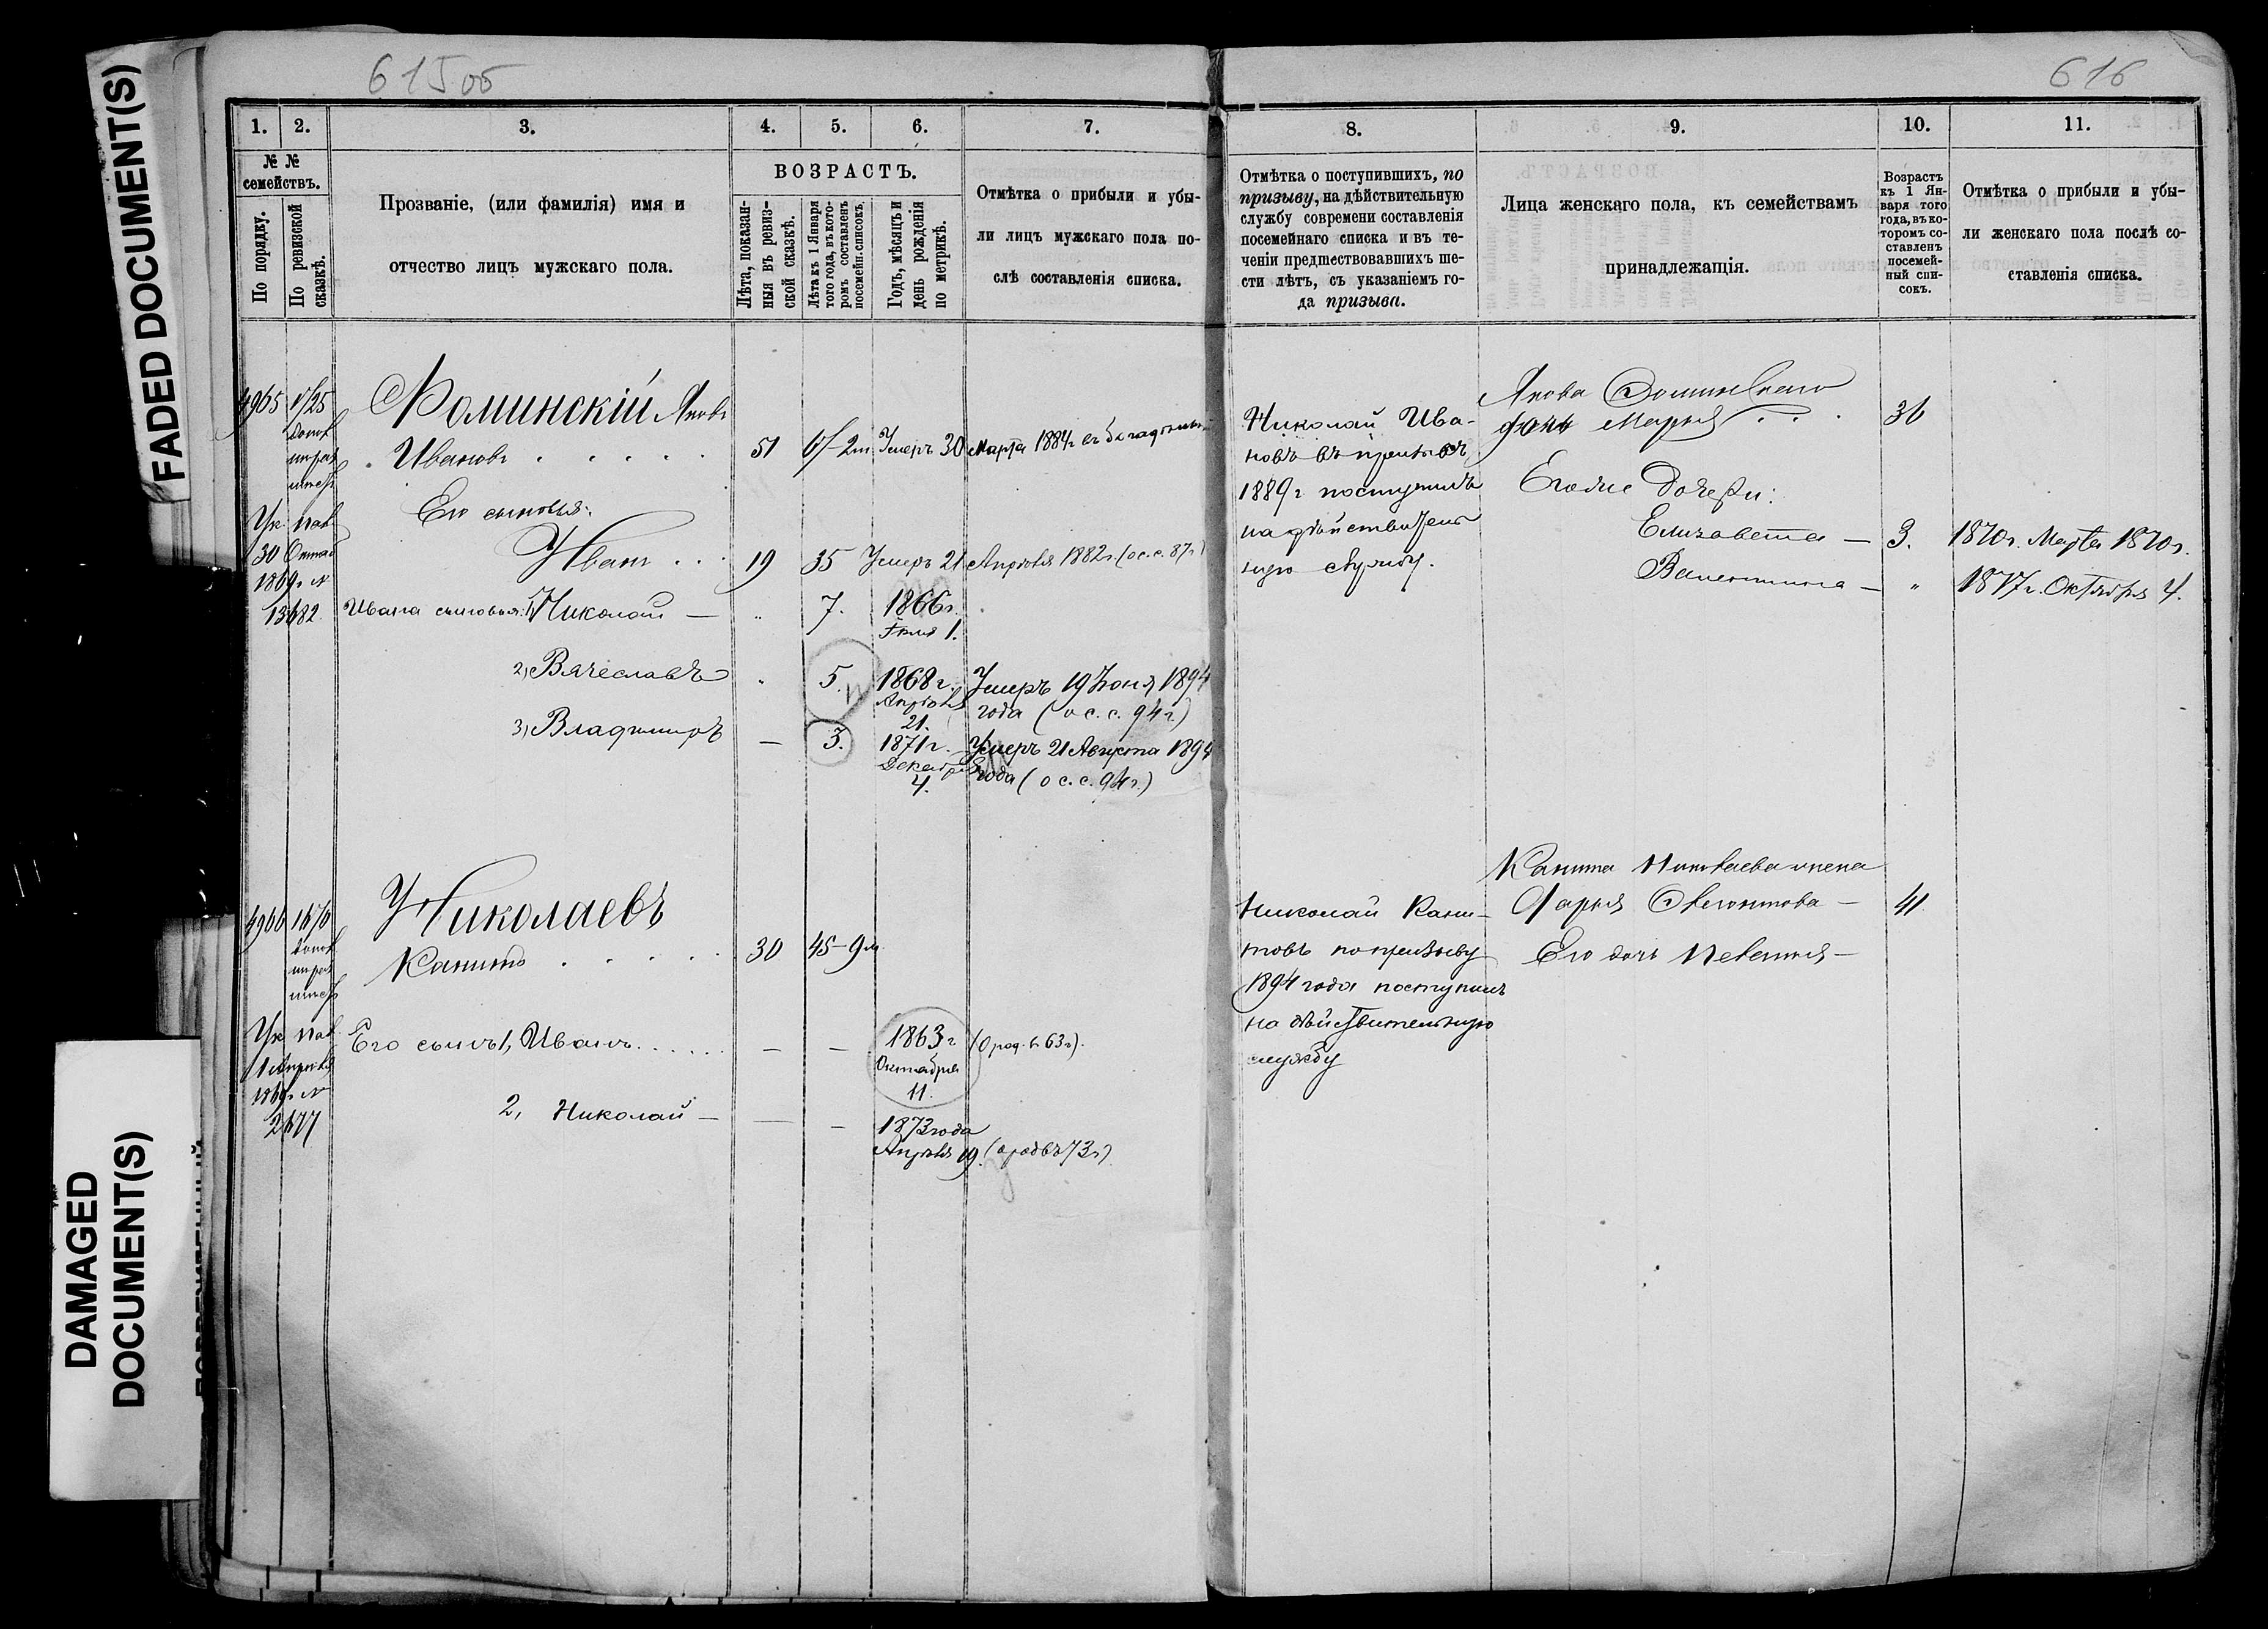 FADED DOCUMENT(S)
DAMAGED
DOCUMENT(S)
615 об
616
1. 2. 3. 4. 5. 6. 7.
№ №
семействъ.
По порядку.
По ревизской
сказкѣ.
Прозваніе, (или фамилія) имя и
отчество лицъ мужскаго пола.
ВОЗРАСТЪ.
Лѣта, показан-
ныя въ ревиз-
ской сказкѣ.
Лѣта къ 1 Января
того года, въ кото-
ромъ составленъ
посемейн. списокъ.
Годъ, мѣсяцъ и
день рожденія
по метрикѣ.
Отмѣтка о прибыли и убы-
ли лицъ мужскаго пола по-
слѣ составленія списка.
8. 9. 10. 11.
Отмѣтка о поступившихъ, по
призыву, на дѣйствительную
службу современи составленія
посемейнаго списка и въ те-
ченіи предшествовавшихъ ше-
сти лѣтъ, съ указаніемъ го-
да призыва.
Лица женскаго пола, къ семействамъ
принадлежащія.
Возрастъ
къ 1 Ян-
варя того
года, въ ко-
торомъ со-
ставленъ
посемей-
ный спи-
сокъ.
Отмѣтка о прибыли и убы-
ли женскаго пола послѣ со-
ставленія списка.
4965
Фоминскій Яковъ
Ивановъ 51 Умеръ 30 Марта 1884 г
Его сыновья:
Иванъ 19 35 Умеръ 21 Апрѣля 1882 г. (о с. с. 87 г)
Ук. каз
30 Октяб
1869 г. №
13682
Ивана сыновья: 1, Николай — " 7. 1866 г.
Іюля 1.
2, Вячеславъ " 5. 1868 г. Умеръ 19 Іюня 1894
Апрѣля года (о с. с. 94 г)
21.
3, Владиміръ — 3. 1871 г. Умеръ 21 Августа 1894
Декабря года (о с. с. 94 г.)
4.
Николай Ива-
новъ въ призывъ
1889 г поступилъ
на дѣйствитель
ную службу.
Якова Фоминскаго
жена Марья 36
Его же дочери:
Елизавета — 3. 1870 г. Марта 1870 г.
Валентина — " 1877 г. Октября 4.
4966
Николаевъ
Капитонъ 30 45-9 м
Его сынъ 1, Иванъ — — 1863 г (о род. въ 63 г).
Октября
11.
2, Николай — — — 1873 года
Апрѣля 19. (о род въ 73 г)
Николай Капи-
товъ по призыву
1894 года поступилъ
на дѣйствительную
службу
Капита Николаева жена
Дарья — 41
Его дочь